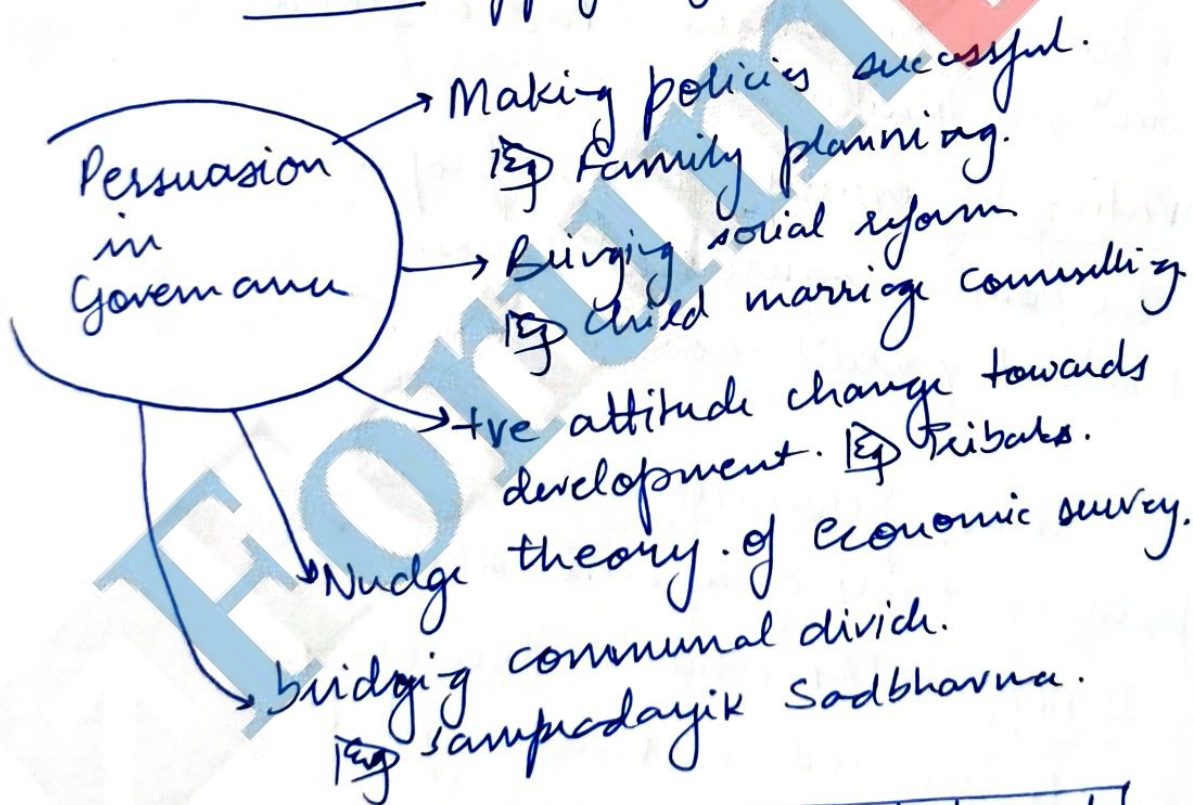 Persuasion
in
Governance
Making policies successful.
Eg Family planning.
Bringing social reform
Eg Child marriage counselling
+ve attitude change towards
development. Eg Tribals.
Nudge theory. of economic survey.
bridging communal divide.
Eg Sampradayik Sadbhavna.
Forum